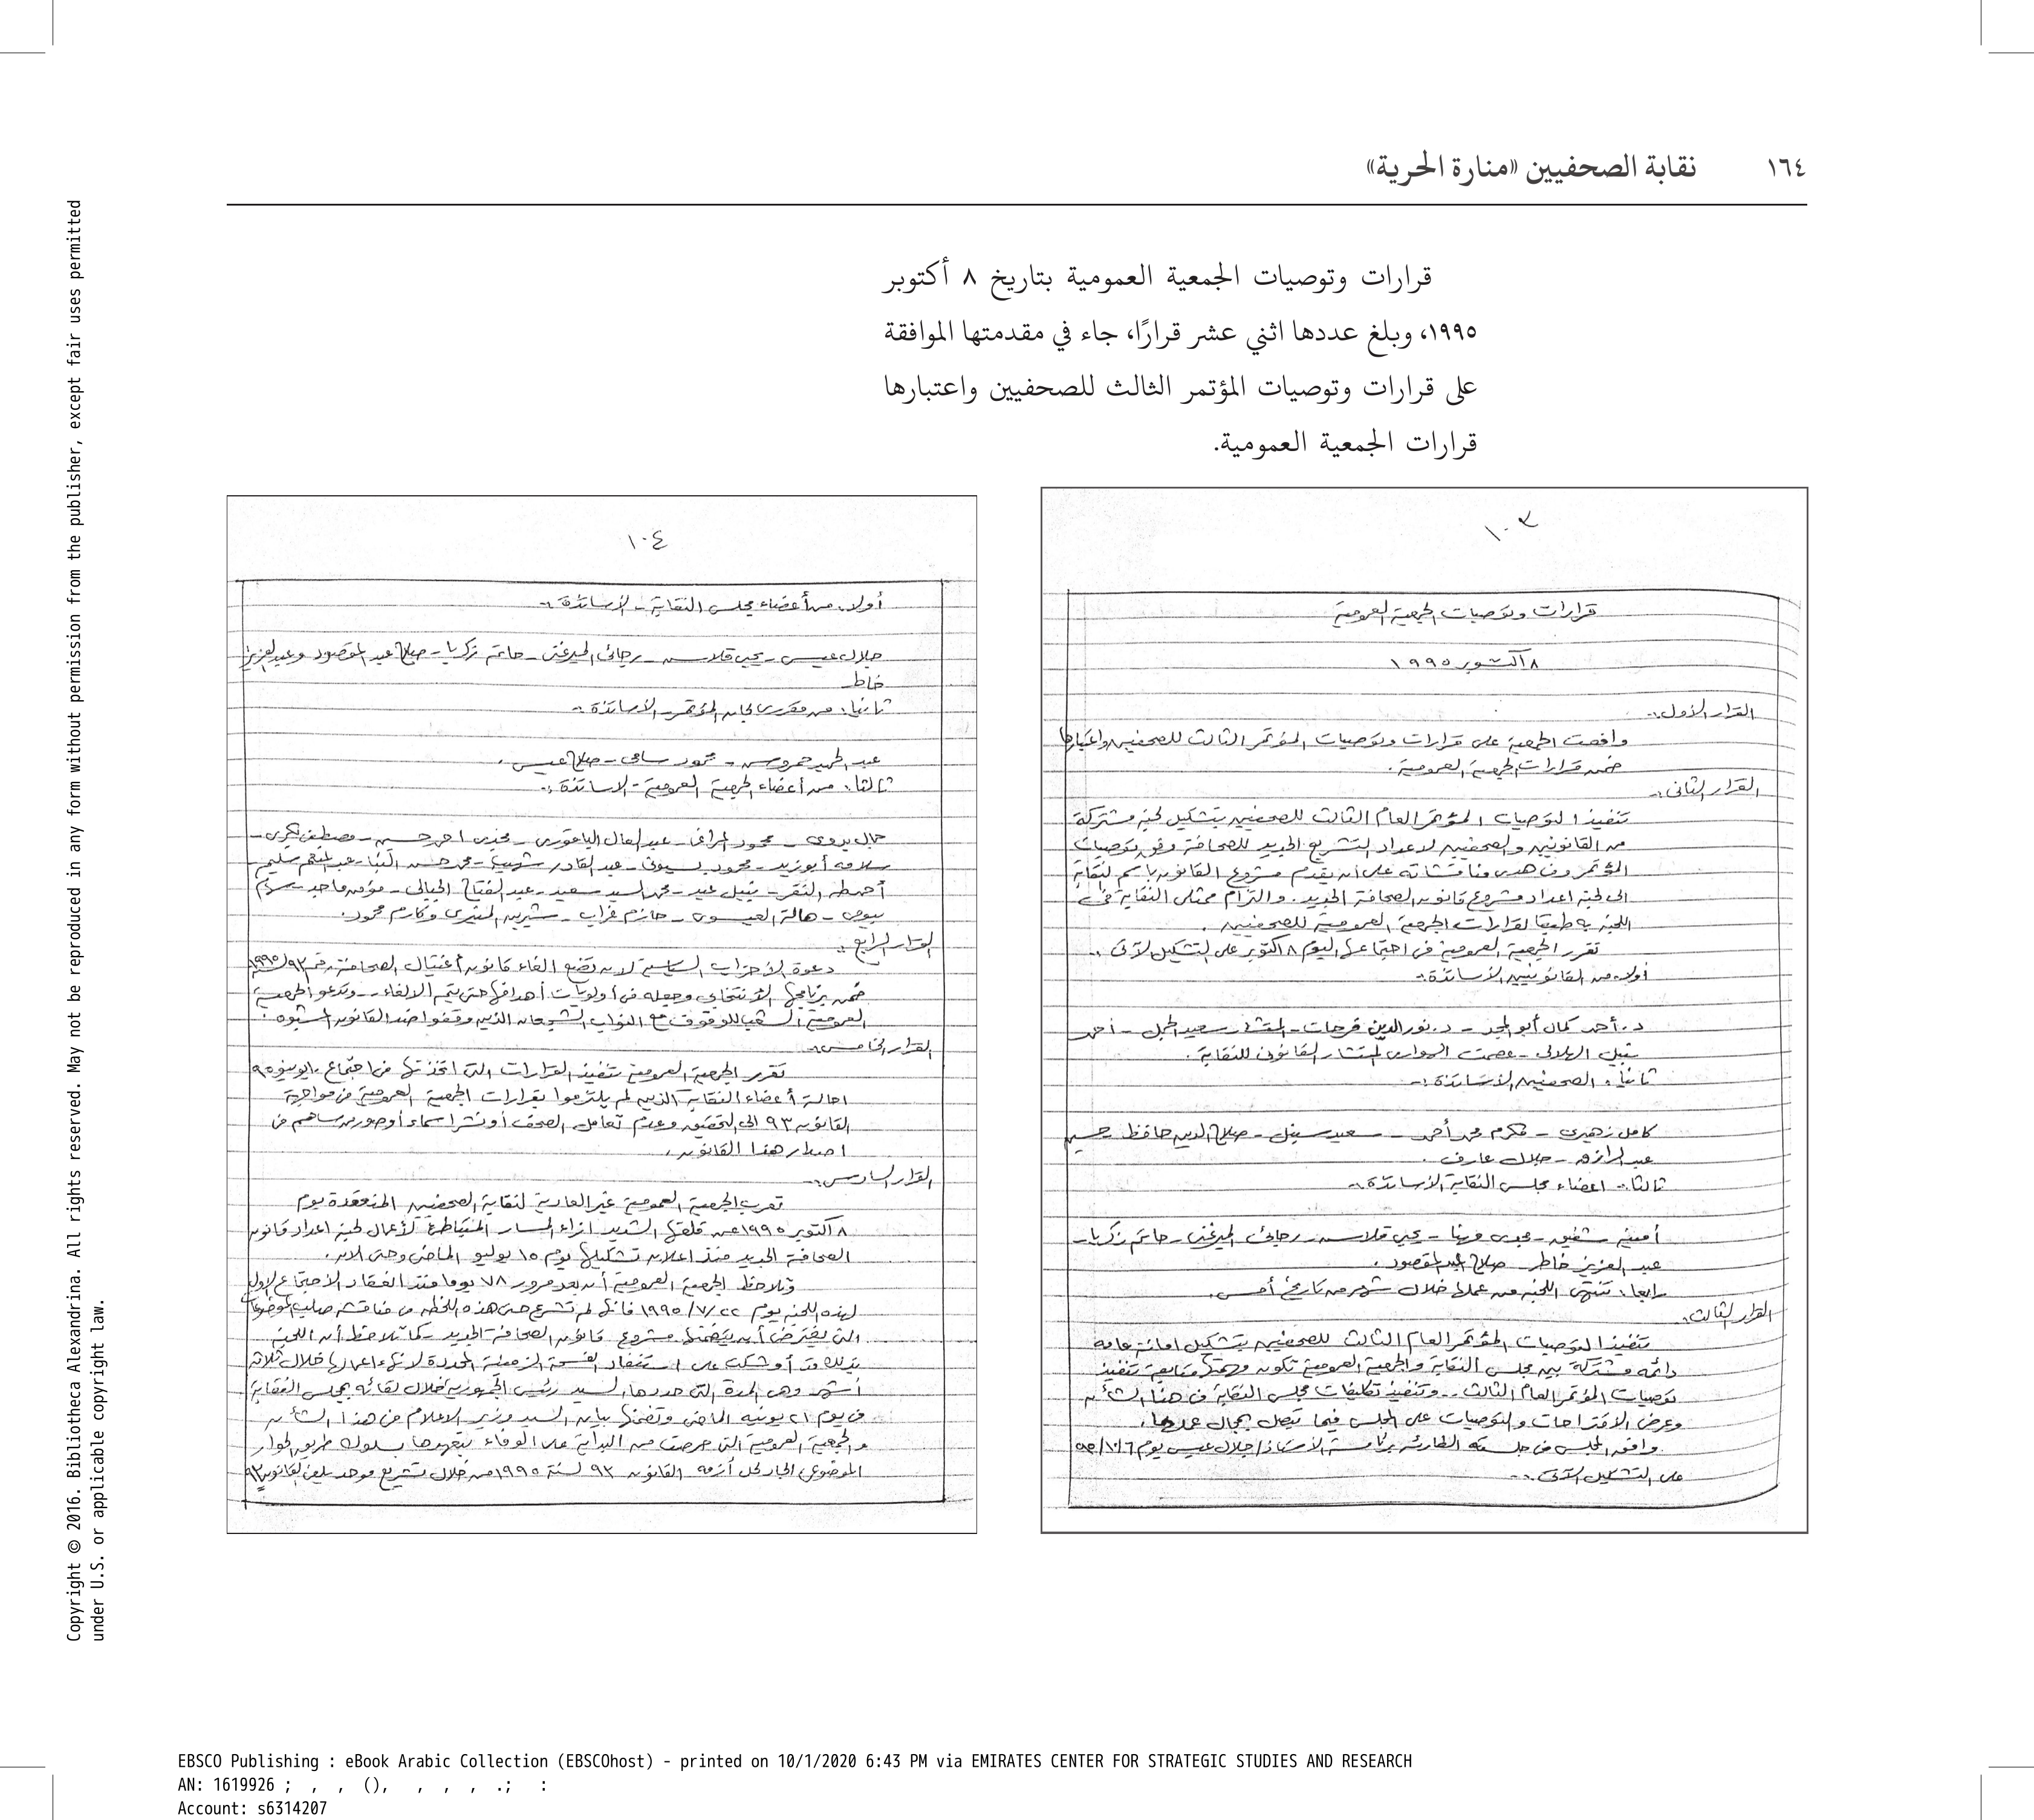 ١٦٤ نقابة الصحفيين «منارة الحرية»
قرارات وتوصيات الجمعية العمومية بتاريخ ٨ أكتوبر
١٩٩٥، وبلغ عددها اثني عشر قرارًا، جاء في مقدمتها الموافقة
على قرارات وتوصيات المؤتمر الثالث للصحفيين واعتبارها
قرارات الجمعية العمومية.
١٠٣
قرارات وتوصيات الجمعية العمومية
٨ أكتوبر ١٩٩٥
القرار الأول:-
وافقت الجمعية على قرارات وتوصيات المؤتمر الثالث للصحفيين واعتبارها
ضمن قرارات الجمعية العمومية.
القرار الثانى:-
تنفيذا لتوصيات المؤتمر العام الثالث للصحفيين بتشكيل لجنة مشتركة
من القانونيين والصحفيين لاعداد التشريع الجديد للصحافة وفق توصيات
المؤتمر وفى هدى مناقشاته على أن يقدم مشروع القانون باسم النقابة
الى لجنة اعداد مشروع قانون الصحافة الجديد. والتزام ممثلى النقابة فى
اللجنة به طبقا لقرارات الجمعية العمومية للصحفيين.
تقرر الجمعية العمومية فى اجتماعها اليوم ٨ أكتوبر على التشكيل الآتى:-
أولا: من القانونيين الأساتذة:-
د. أحمد كمال أبو المجد - د. نور الدين فرحات - المستشار سعيد الجمل - أحمد
نبيل الهلالى - عصمت الهوارى المستشار القانونى للنقابة.
ثانيا: الصحفيين الأساتذة:-
كامل زهيرى - مكرم محمد أحمد - سعيد سنبل - صلاح الدين حافظ حسين
عبد الرازق - جلال عارف.
ثالثا: اعضاء مجلس النقابة الأساتذة:-
أمينة شفيق - مجدى مهنا - يحيى قلاش - رجائى الميرغنى - حاتم زكريا -
عبد العزيز خاطر - صلاح عبد المقصود.
رابعا: تنتهى اللجنة من عملها خلال شهر من تاريخ أمس.
القرار الثالث:-
تنفيذا لتوصيات المؤتمر العام الثالث للصحفيين بتشكيل امانة عامة
دائمة مشتركة بين مجلس النقابة والجمعية العمومية تكون مهمتها متابعة تنفيذ
توصيات المؤتمر العام الثالث.. وتنفيذ تكليفات مجلس النقابة فى هذا الشأن
وعرض الاقتراحات والتوصيات على المجلس فيما يتصل بمجال عملها.
وافق المجلس فى جلسته الطارئة برئاسة الأستاذ/ جلال عيسى يوم ٩٥/١٠/٦
على التشكيل الآتى:-
١٠٤
أولا: من أعضاء مجلس النقابة - الأساتذة:-
جلال عيسى - يحيى قلاش - رجائى الميرغنى - حاتم زكريا - صلاح عبد المقصود وعبد العزيز
خاطر
ثانيا: من مقررى لجان المؤتمر - الأساتذة:-
عبد الحميد حمروش - محمود سامى - صلاح عيسى.
ثالثا: من أعضاء الجمعية العمومية - الاساتذة:-
جمال بدوى - محمود المراغى - عبد العال الباقورى - مجدى احمد حسين - مصطفى بكرى -
سلامه أبو زيد - محمود بسيونى - عبد القادر شهيب - محمد حسن البنا - عبد المنعم سليم
أحمد طه النقر - نبيل عيد - محمد السيد سعيد - عبد الفتاح الجبالى - مؤمن ماجد -
بيومى - هالة العيسوى - حازم غراب - شيرين المنيرى وكارم محمود.
القرار الرابع:-
دعوة الأحزاب السياسية لان تضع الغاء قانون أغتيال الصحافة رقم ٩٣ لسنة ١٩٩٥
ضمن برنامجها الأنتخابى وجعله فى أولويات أهدافها حتى يتم الالغاء.. وتدعو الجمعية
العمومية الشعب للوقوف مع النواب الشجعان الذين وقفوا ضد القانون المشبوه.
القرار الخامس:-
تقرر الجمعية العمومية تنفيذ القرارات التى اتخذتها فى اجتماع ١٠ يونيو ٩٥
احالة أعضاء النقابة الذين لم يلتزموا بقرارات الجمعية العمومية فى مواجهة
القانون ٩٣ الى التحقيق وعدم تعامل الصحف أو نشر اسماء أو صور من ساهم فى
اصدار هذا القانون.
القرار السادس:-
تعرب الجمعية العمومية غير العادية لنقابة الصحفيين المنعقدة يوم
٨ أكتوبر ١٩٩٥ عن قلقها الشديد ازاء المسار المتباطئ لأعمال لجنة اعداد قانون
الصحافة الجديد منذ اعلان تشكيلها يوم ١٥ يوليو الماضى وحتى الان.
وتلاحظ الجمعية العمومية أنه بعد مرور ٧٨ يوما منذ انعقاد الاجتماع الاول
لهذه اللجنة يوم ١٩٩٥/٧/٢٢ فانها لم تشرع حتى هذه اللحظة فى مناقشة صلب الموضوعات
التى يفترض أن يتضمنها مشروع قانون الصحافة الجديد - كما تلاحظ أن اللجنة
بذلك قد أوشكت على استنفاد الفسحة الزمنية المحددة لانهاء اعمالها خلال ثلاثة
أشهر وهى المدة التى حددها السيد رئيس الجمهورية خلال لقائه بمجلس النقابة
فى يوم ٢١ يونيه الماضى وتضمنها بيان السيد وزير الاعلام فى هذا الشأن
والجمعية العمومية التى حرصت من البداية على الوفاء بتعهدها بسلوك طريق الحوار
الموضوعى الجاد لحل أزمة القانون ٩٣ لسنة ١٩٩٥ من خلال تشريع موحد يلغى القانون ٩٣
Copyright © 2016. Bibliotheca Alexandrina. All rights reserved. May not be reproduced in any form without permission from the publisher, except fair uses permitted
under U.S. or applicable copyright law.
EBSCO Publishing : eBook Arabic Collection (EBSCOhost) - printed on 10/1/2020 6:43 PM via EMIRATES CENTER FOR STRATEGIC STUDIES AND RESEARCH
AN: 1619926 ; , , (), , , , .; :
Account: s6314207